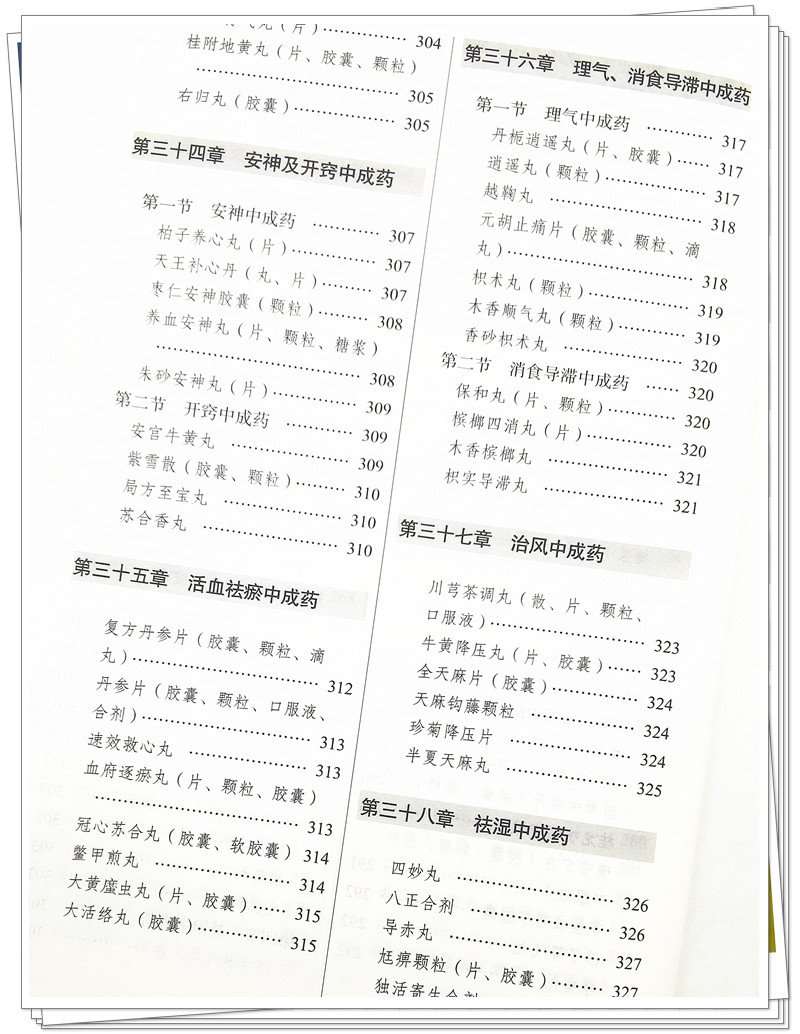 （片）………………304
桂附地黄丸（片、胶囊、颗粒）
………………………………305
右归丸（胶囊）………………305
第三十四章 安神及开窍中成药
第一节 安神中成药 …………307
柏子养心丸（片）……………307
天王补心丹（丸、片）………307
枣仁安神胶囊（颗粒）………308
养血安神丸（片、颗粒、糖浆）
………………………………308
朱砂安神丸（片）……………309
第二节 开窍中成药 …………309
安宫牛黄丸 …………………309
紫雪散（胶囊、颗粒）………310
局方至宝丸 …………………310
苏合香丸 ……………………310
第三十五章 活血祛瘀中成药
复方丹参片（胶囊、颗粒、滴
丸）……………………………312
丹参片（胶囊、颗粒、口服液、
合剂）…………………………313
速效救心丸 …………………313
血府逐瘀丸（片、颗粒、胶囊）
………………………………313
冠心苏合丸（胶囊、软胶囊）314
鳖甲煎丸 ……………………314
大黄䗪虫丸（片、胶囊）……315
大活络丸（胶囊）……………315
第三十六章 理气、消食导滞中成药
第一节 理气中成药 …………317
丹栀逍遥丸（片、胶囊）……317
逍遥丸（颗粒）………………317
越鞠丸 ………………………318
元胡止痛片（胶囊、颗粒、滴
丸）……………………………318
枳术丸（颗粒）………………319
木香顺气丸（颗粒）…………319
香砂枳术丸 …………………320
第二节 消食导滞中成药 ……320
保和丸（片、颗粒）…………320
槟榔四消丸（片）……………320
木香槟榔丸 …………………321
枳实导滞丸 …………………321
第三十七章 治风中成药
川芎茶调丸（散、片、颗粒、
口服液）………………………323
牛黄降压丸（片、胶囊）……323
全天麻片（胶囊）……………324
天麻钩藤颗粒 ………………324
珍菊降压片 …………………324
半夏天麻丸 …………………325
第三十八章 祛湿中成药
四妙丸 ………………………326
八正合剂 ……………………326
导赤丸 ………………………327
尪痹颗粒（片、胶囊）………327
独活寄生合剂